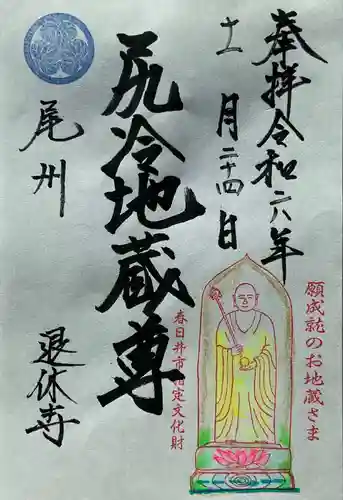 奉拝令和六年
十一月二十四日
尻冷地蔵尊
尾州
退休寺
願成就のお地蔵さま
春日井市指定文化財